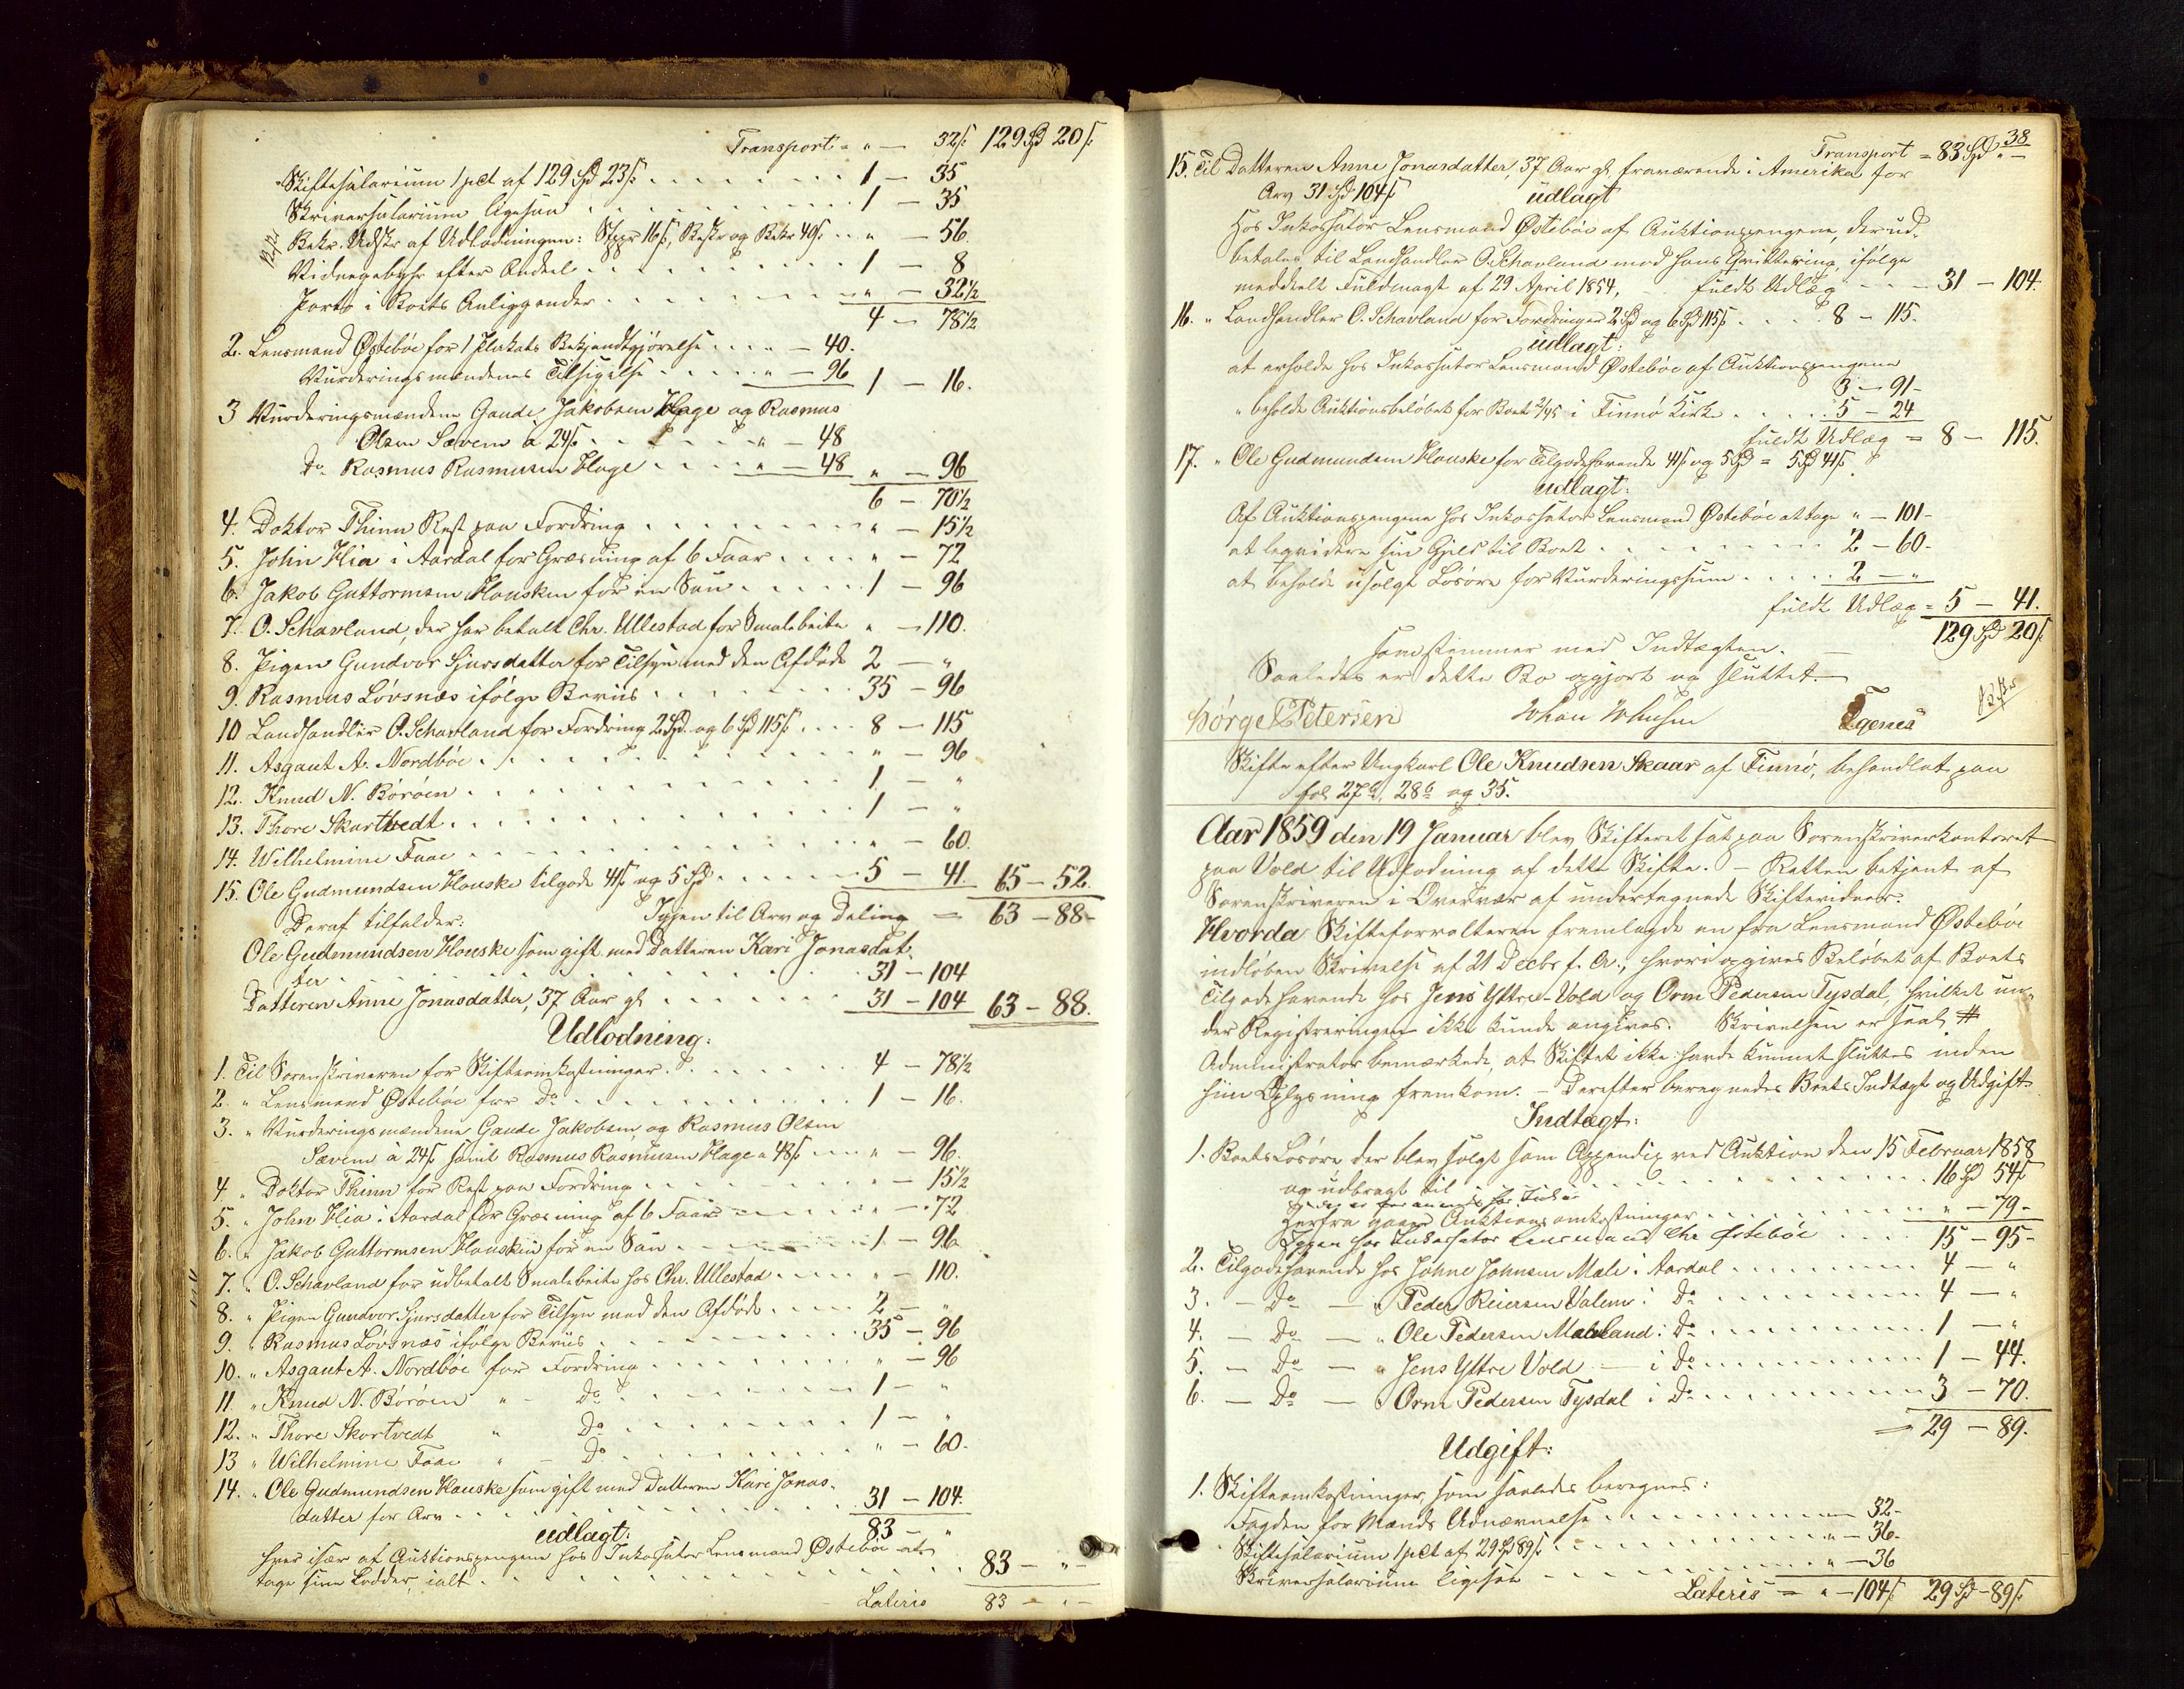 Transport = " — 32 s 129 Spd 20 s
Skiftesalarium 1 pCt af 129 Spd 23 s . . . . 1 — 35
Skriversalarium ligesaa . . . . 1 — 35
Bekr. Udskr af Udlodningen: Stppr 16 s, Beskr og Bekr 40 s . . " — 56.
Vidnegebyhr efter Andeel . . . . 1 — 8
Porto i Boets Anliggender . . . . " — 32 1/2
4 — 78 1/2
2. Lensmand Østebøe for 1 Plakats Bekjendtgjørelse . . . " — 40.
Vurderingsmændenes Tilsigelse . . . . " — 96 1 — 16.
3 Vurderingsmændene Gaude Jakobsen Hage og Rasmus
Olsen Sævem a 24 s . . . . " — 48
Do. Rasmus Rasmusen Hage . . . . " — 48 " — 96
6 — 70 1/2
4. Doktor Thinn Rest paa Fordring . . . . " — 15 1/2
5. John Hia i Aardal for Græsning af 6 Faar . . . . " — 72
6. Jakob Guttormsen Hausken for en Sau . . . . 1 — 96
7. O. Schavland, der har betalt Chr. Ullestad for Smalebeite " — 110.
8. Pigen Gundvor Sjursdatter for Tilsyn med den Afdøde 2 — "
9. Rasmus Løvsnæs ifølge Beviis . . . . 35 — 96
10 Landhandler O. Schavland for Fordring 2 Spd. og 6 Spd 115 s . . . 8 — 115
11. Asgaut A. Nordbøe . . . . " — 96
12. Knud N. Børøen . . . . 1 — "
13. Thore Skartvedt . . . . 1 — "
14. Wilhelmine Faae . . . . " — 60.
15. Ole Gudmundsen Hauske tilgode 41 s og 5 Spd . . . . 5 — 41. 65 — 52.
Igjen til Arv og Deling = 63 — 88 -
Deraf tilfalder:
Ole Gudmundsen Hauske som gift med Datteren Kari Jonasdat-
ter . . . . 31 — 104
Datteren Anne Jonasdatter, 37 Aar gl . . . . 31 — 104 63 — 88.
Udlodning:
1. Til Sorenskriveren for Skifteomkostninger . . . . 4 — 78 1/2
2. " Lensmand Østebøe for Do . . . . 1 — 16.
3. " Vurderingsmændene Gaude Jakobsen og Rasmus Olsen
Sævem à 24 s samt Rasmus Rasmusen Hage a 48 s . . . " — 96.
4. " Doktor Thinn for Rest paa Fordring . . . . " — 15 1/2
5. " John Hia i Aardal for Græsning af 6 Faar . . . . " — 72
6. " Jakob Guttormsen Hausken for en Sau . . . . 1 — 96
7. " O. Schavland for udbetalt Smalebeite hos Chr. Ullestad . . . . " — 110.
8. " Pigen Gundvor Sjursdatter for Tilsyn med den Afdøde . . . . 2 — "
9. " Rasmus Løvsnæs ifølge Beviis . . . . 35 — 96
10. " Asgaut A. Nordbøe for Fordring . . . . " — 96
11. " Knud N. Børøen " - Do . . . . 1 — "
12. " Thore Skartvedt " Do . . . . 1 — "
13 " Wilhelmine Faae " - Do . . . . " — 60.
14. " Ole Gudmundsen Hauske som gift med Datteren Kari Jonas-
datter for Arv . . . . 31 — 104.
83 — "
udlagt:
hver især af Auktionspengene hos Inkassator Lensmand Østebøe at
tage sine Lodder, ialt . . . . 83 — " —
Lateris 83 — " —
38
Transport = 83 Spd " —
15. Til Datteren Anne Jonasdatter, 37 Aar gl, fraværende i Amerika, for
Arv 31 Spd 104 s
udlagt
hos Inkassator Lensmand Østebøe af Auktionspengene, der ud-
betales til Landhandler O. Schavland mod hans Qvittering, ifølge
meddeelt Fuldmagt af 29 April 1854, fuldt Udlæg - - - 31 — 104.
16. " Landhandler O. Schavland for Fordringer 2 Spd og 6 Spd 115 s . . . . 8 — 115.
udlagt:
at erholde hos Inkassator Lensmand Østebøe af Auktionspengene
3 — 91 -
" beholde Auktionsbeløbet for Boets 2/45 i Finnø Kirke . . . . 5 — 24
fuldt Udlæg = 8 — 115.
17. " Ole Gudmundsen Hauske for Tilgodehavende 41 s og 5 Spd = 5 Spd 41 s
udlagt:
Af Auktionspengene hos Inkassator Lensmand Østebøe at tage " — 101 -
at liqvidere sin Gjeld til Boet . . . . 2 — 60 -
at beholde usolgt Løsøre for Vurderingssum . . . . 2 — "
fuldt Udlæg = 5 — 41.
129 Spd 20 s
som stemmer med Indtægten.
Saaledes er dette Bo opgjort og sluttet. —
Børge Petersen Johan Johnsen Egenes
Skifte efter Ungkarl Ole Knudsen Skaar af Finnø, behandlet paa
fol 27 b, 28 b og 35.
Aar 1859 den 19 Januar blev Skifteret sat paa Sorenskriverkontoret
paa Vold til Udlodning af dette Skifte. — Retten betjent af
Sorenskriveren i Overvær af undertegnede Skiftevidner.
Hvorda Skifteforvalteren fremlagde en fra Lensmand Østebøe
indløben Skrivelse af 21 Decbr f. A., hvori opgives Beløbet af Boets
Tilgodehavende hos Jens Yttre-Vold og Orm Pedersen Tysdal, hvilket un-
der Registreringen ikke kunde angives. Skrivelsen er saal. #
Administrator bemærkede, at Skiftet ikke havde kunnet sluttes inden
hiin Oplysning fremkom. — Derefter beregnedes Boets Indtægt og Udgift
Indtægt:
1. Boets Løsøre der blev solgt som Appendix ved Auktion den 15 Februar 1858
og udbragt til . . . . 16 Spd 54 s
herfra gaaer Auktionsomkostninger . . . . " — 79 -
Igjen hos Inkassator Lensmand Chr Østebøe . . . . 15 — 95 -
2. Tilgodehavende hos Johne Johnsen Mæle i Aardal . . . . 4 — "
3. — Do — " Peder Reiersen Valem i Do . . . . 4 — "
4. — Do — " Ole Pedersen Maleland i Do . . . . 1 — "
5. — Do — " Jens Yttre Vold — i Do . . . . 1 — 44.
6. — Do — " Orm Pedersen Tysdal i Do . . . . 3 — 70.
= 29 — 89.
Udgift:
1. Skifteomkostninger, som saaledes beregnes:
Fogden for Mænds Udnævnelse . . . . — 32 -
Skiftesalarium 1 pCt af 29 Spd 89 s . . . . " — 36 -
Skriversalarium ligesaa . . . . " — 36
Lateris = " — 104 s 29 Spd — 89 s